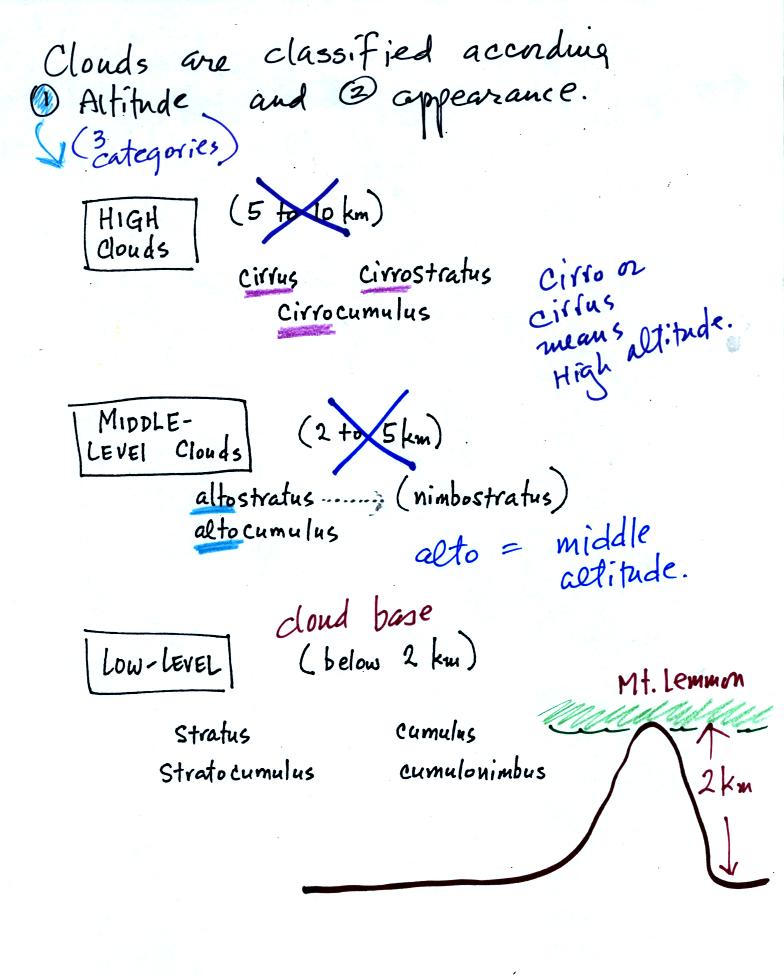 Clouds are classified according
① Altitude and ② appearance.
(3 categories)
HIGH
Clouds
(5 to 10 km)
cirrus cirrostratus
cirrocumulus
cirro or
cirrus
means
High altitude.
MIDDLE-
LEVEL Clouds
(2 to 5 km)
altostratus ........> (nimbostratus)
altocumulus
alto = middle
altitude.
cloud base
LOW-LEVEL (below 2 km)
Mt. Lemmon
Stratus cumulus
Stratocumulus cumulonimbus
2 km